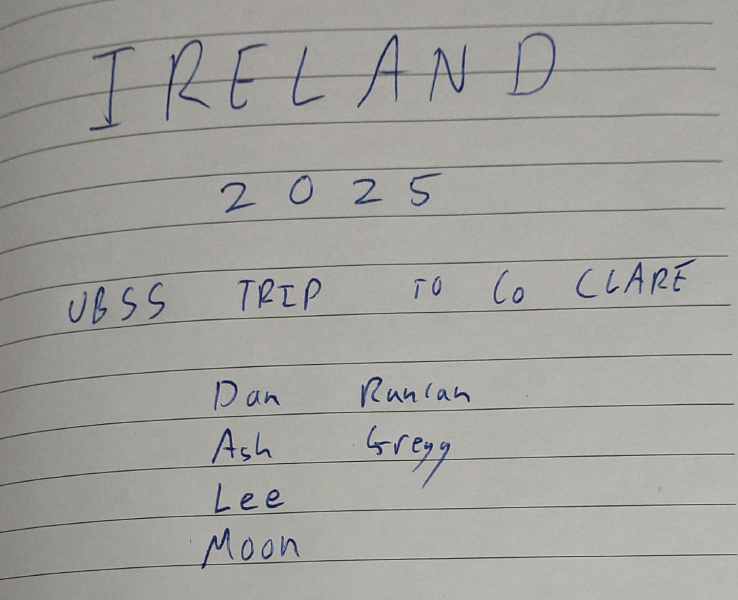 IRELAND
2025
UBSS TRIP TO Co CLARE
Dan Runcan
Ash Gregg
Lee
Moon